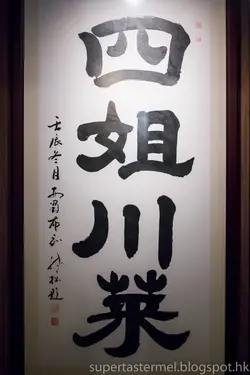 四姐川菜
壬辰冬月
supertastermel.blogspot.hk